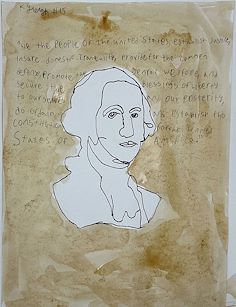 "We the People of the United States, establish Justice,
insure domestic Tranquility, provide for the common
defense, Promote the general welfare, and
secure the Blessings of Liberty
to ourselves our Posterity,
do ordain establish the
Constitution United
States of America."